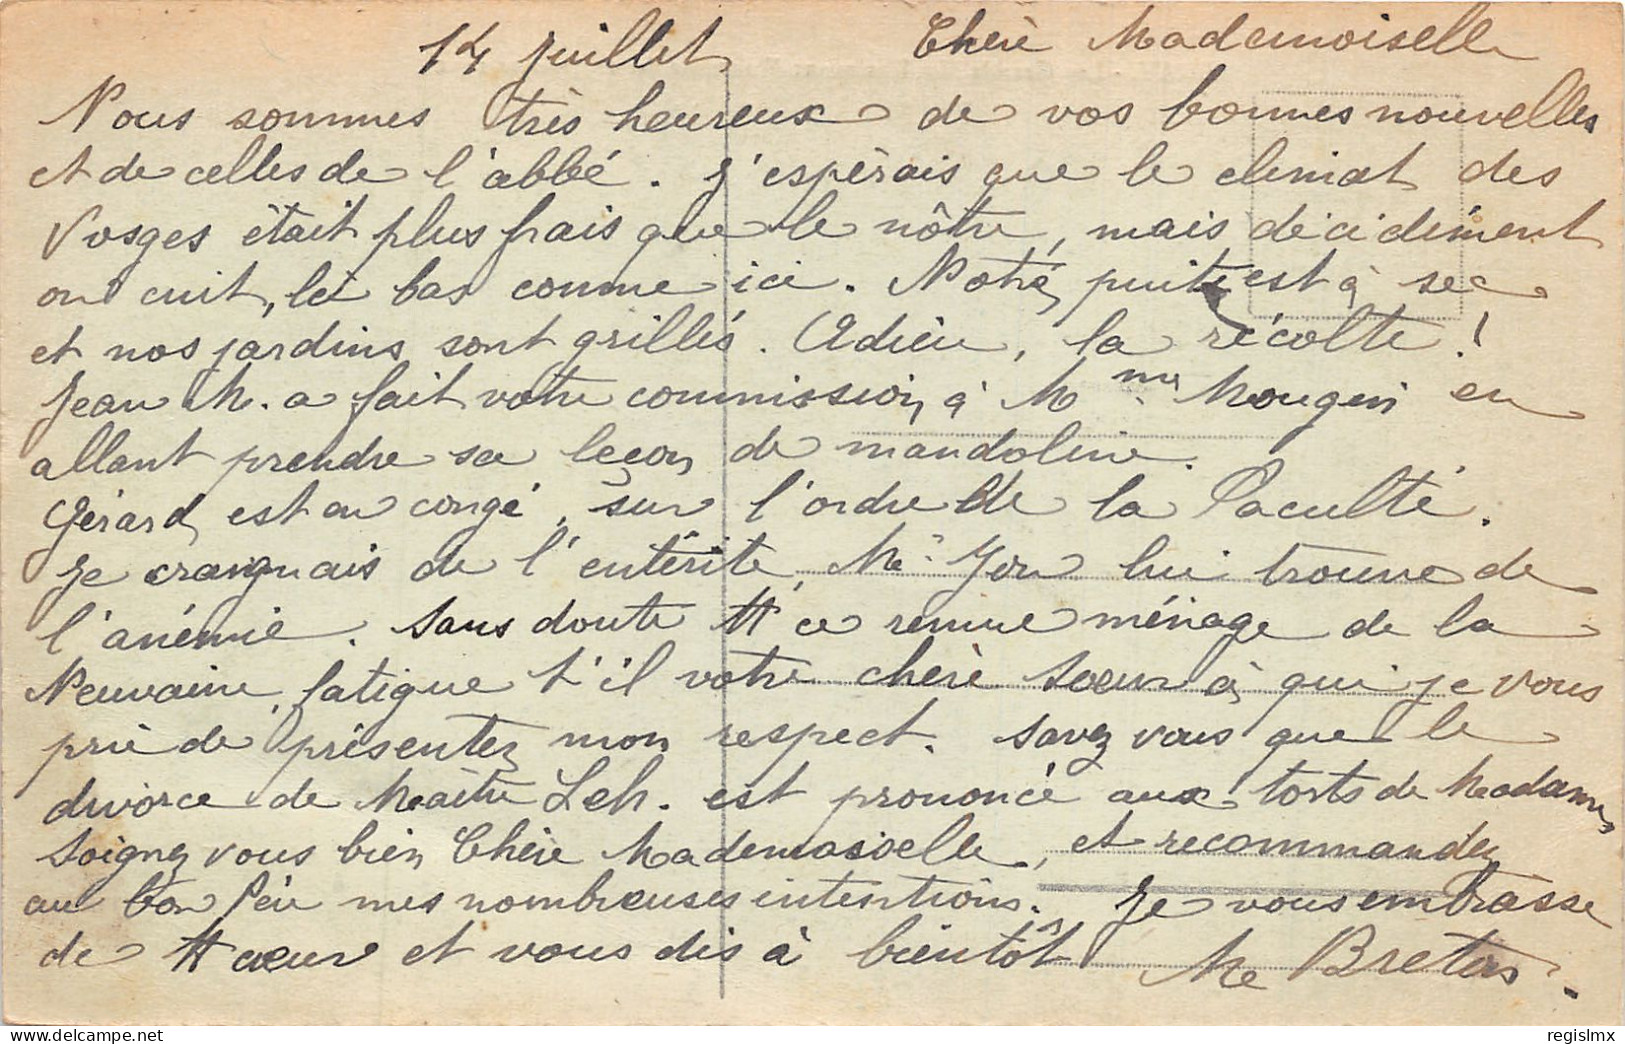 14 Juillet
Chère Mademoiselle
Nous sommes très heureux de vos bonnes nouvelles
et de celles de l'abbé. J'espèrais que le climat des
Vosges était plus frais que le nôtre, mais décidément
on cuit, là bas comme ici. Notre puits est à sec
et nos jardins sont grillés. Adieu, la récolte!
Jean M. a fait votre commission à Mme Mougin en
allant prendre sa leçon de mandoline.
Gérard est en congé, sur l'ordre de la Faculté.
Je craignais de l'entérite, Me lui trouve de
l'anémie. Sans doute tt ce remue ménage de la
Neuvaine, fatigue t'il votre chère Soeur à qui je vous
prie de présenter mon respect. Savez vous que le
divorce de Maître Leh. est prononcé aux torts de Madame
Soignez vous bien Chère Mademoiselle, et recommandez
au bon Père mes nombreuses intentions. Je vous embrasse
de tt coeur et vous dis à bientôt
Me Breton.
regislmx